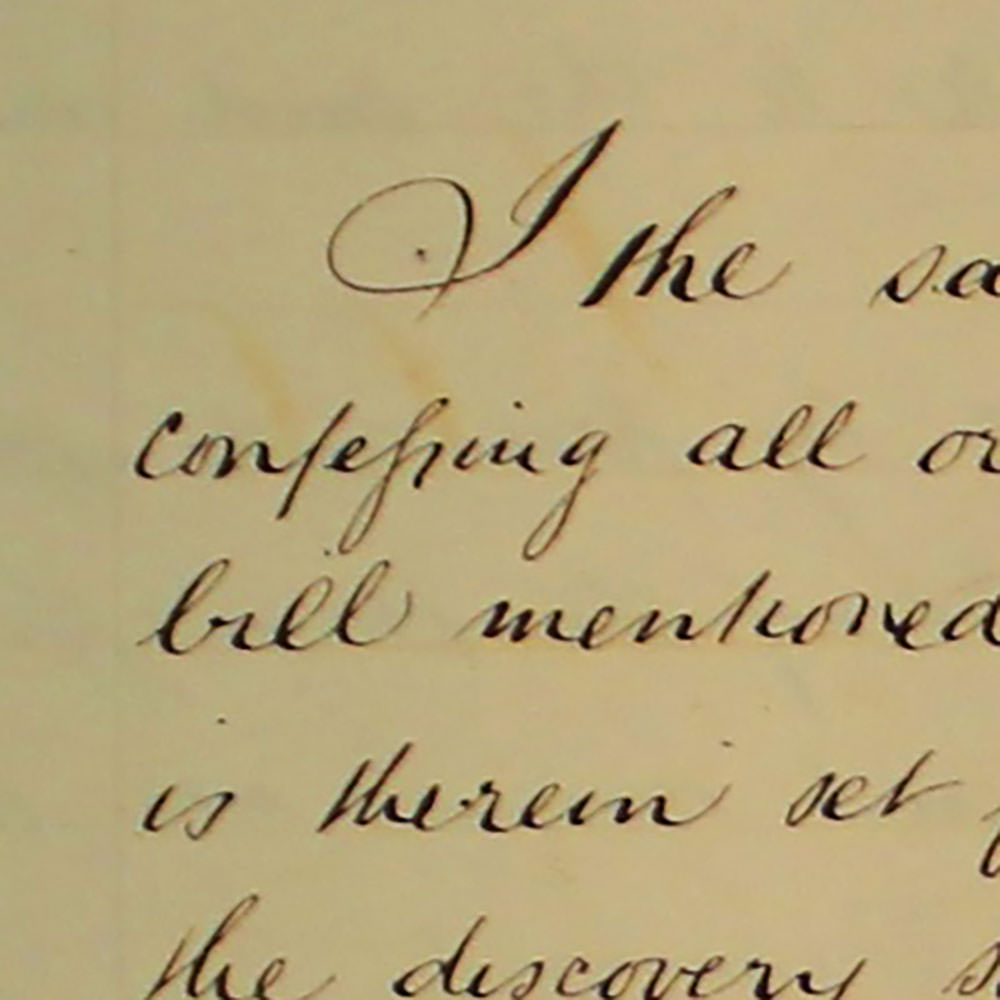 I the sa
confessing all or
bill mentioned
is therein set
the discovery s